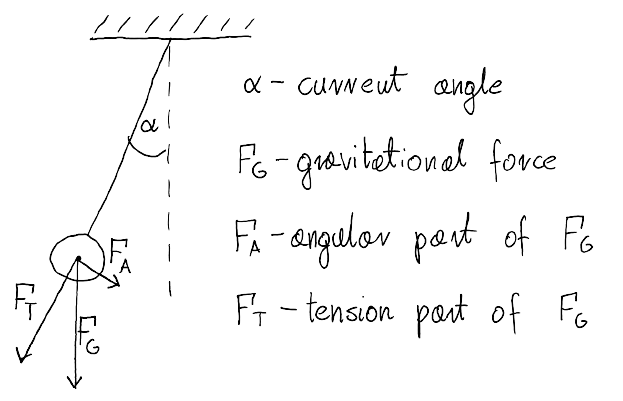 α
α - current angle
F_G - gravitational force
F_A
F_A - angular part of F_G
F_T
F_T - tension part of F_G
F_G